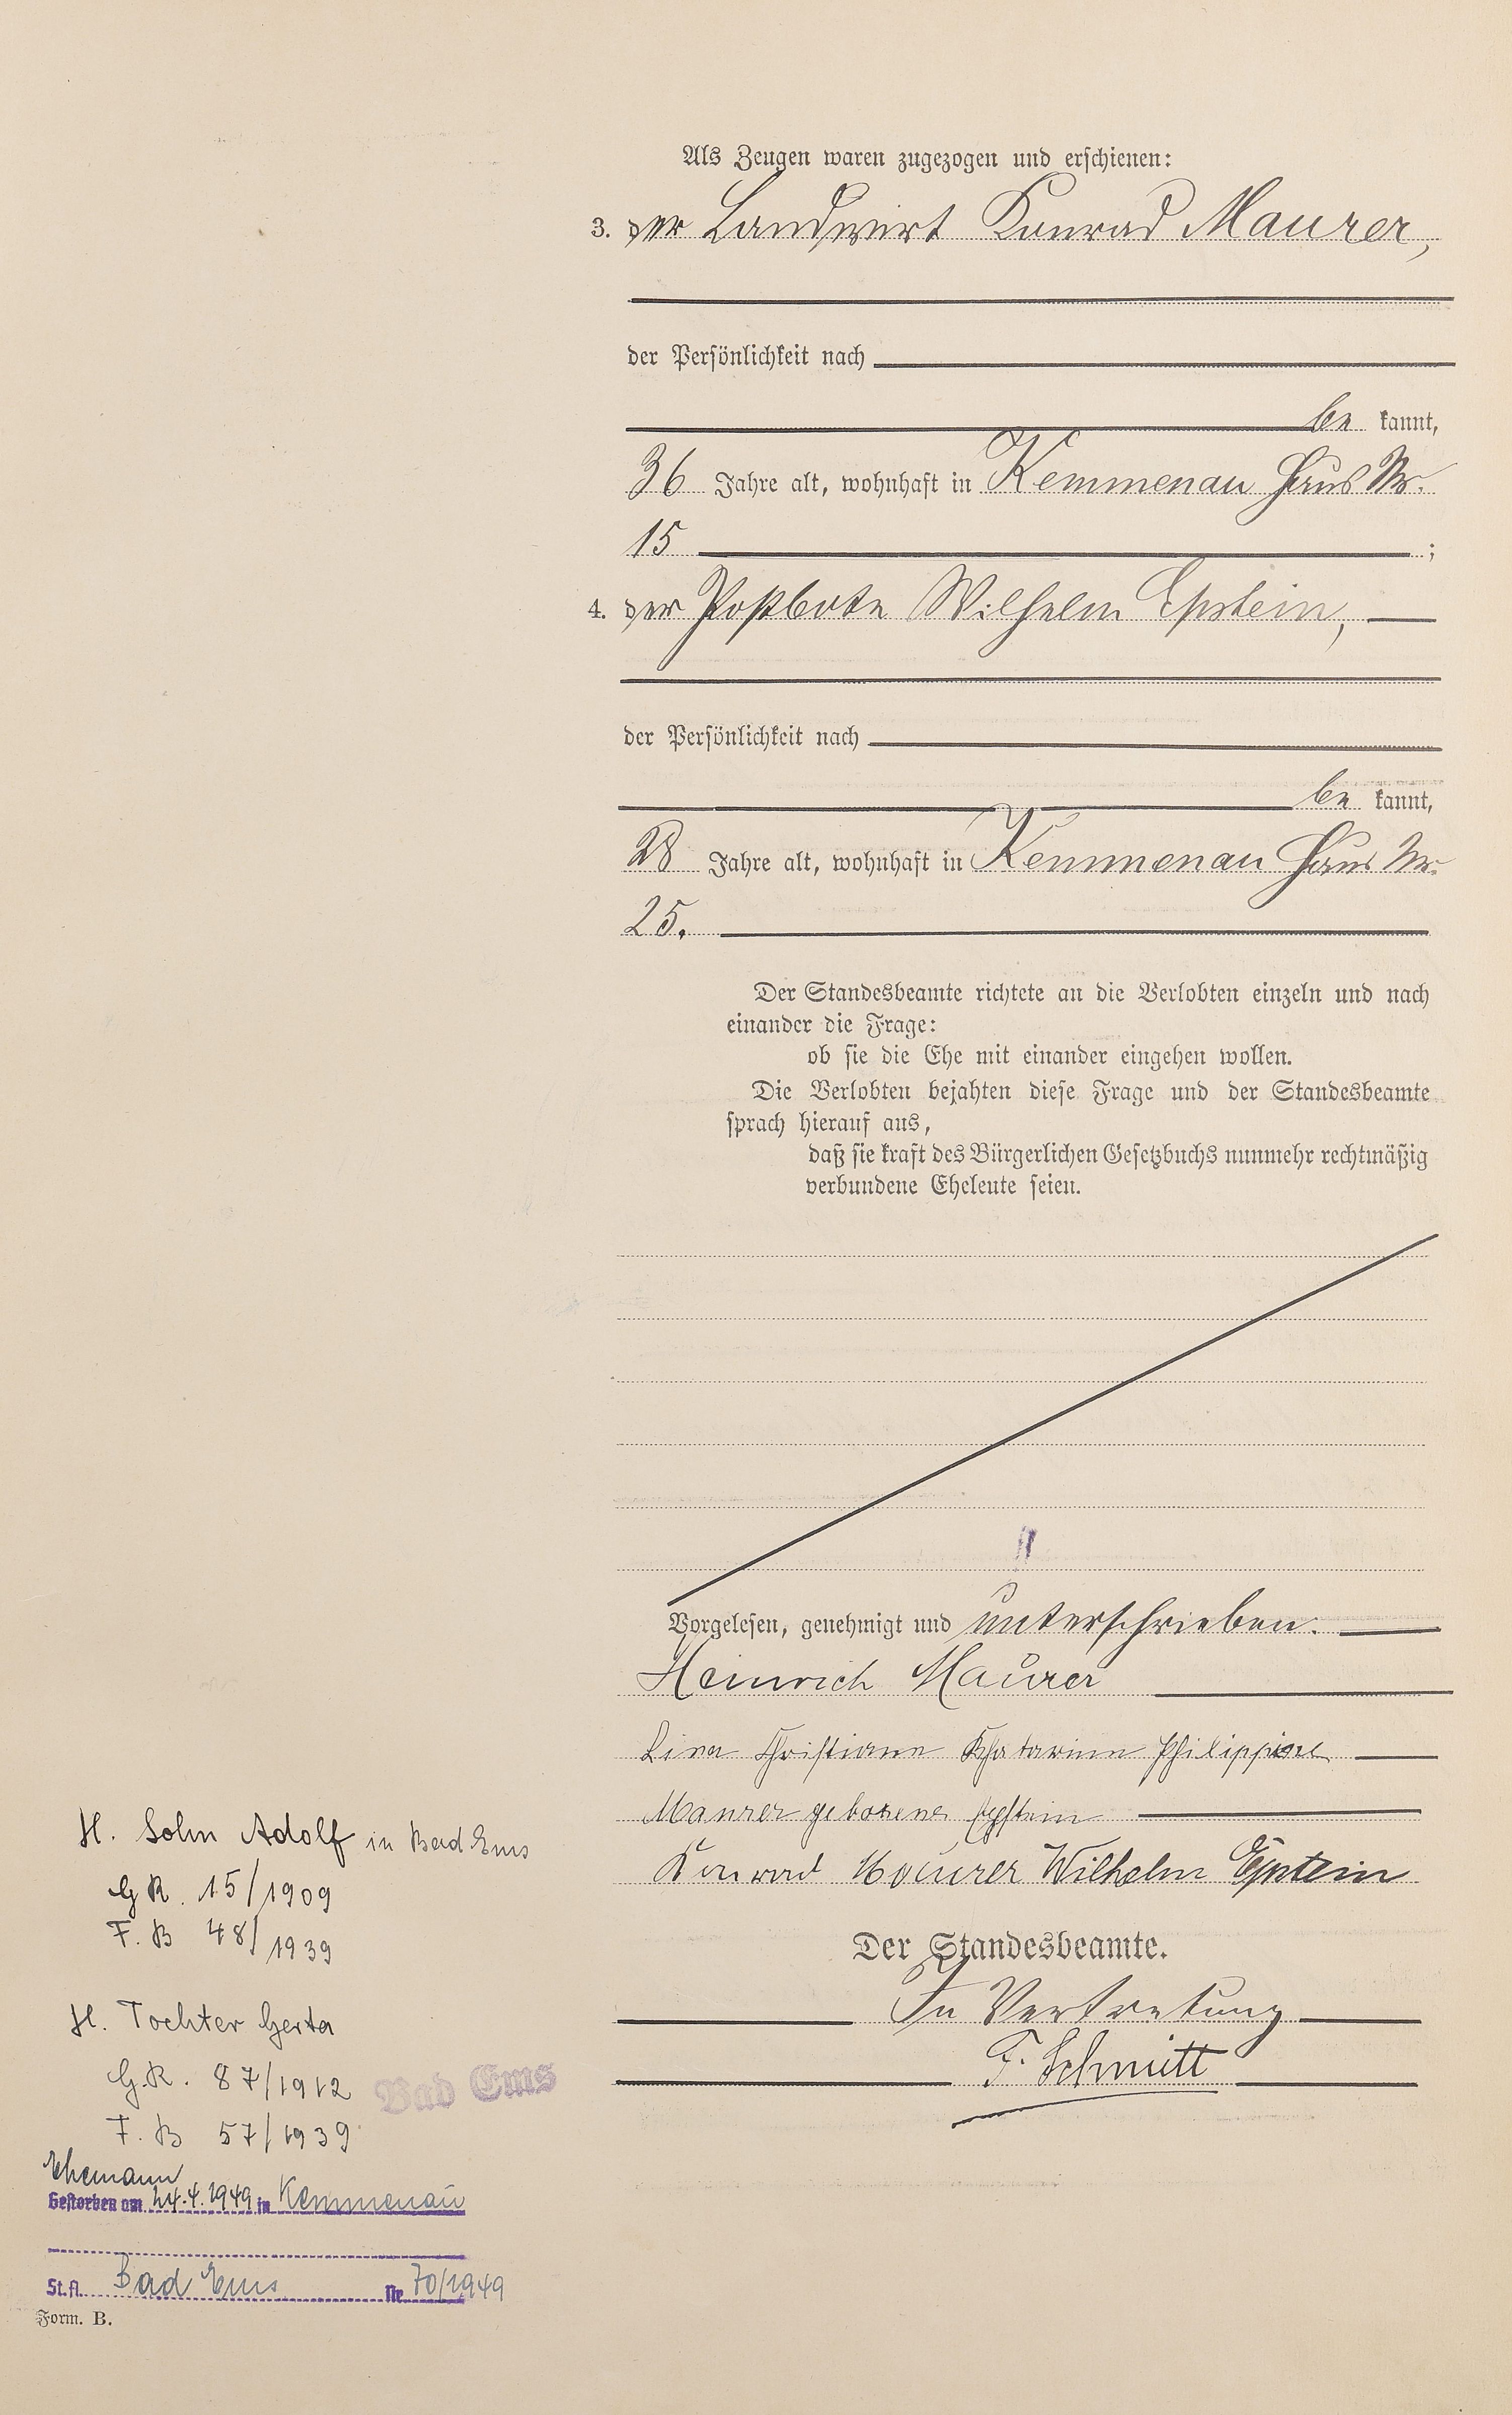 Als Zeugen waren zugezogen und erschienen:
3. der Landwirt Konrad Maurer,
der Persönlichkeit nach
be kannt,
36 Jahre alt, wohnhaft in Kemmenau Haus Nr.
15 ;
4. der Postbote Wilhelm Epstein,
der Persönlichkeit nach
be kannt,
28 Jahre alt, wohnhaft in Kemmenau Haus Nr.
25.
Der Standesbeamte richtete an die Verlobten einzeln und nach
einander die Frage:
ob sie die Ehe mit einander eingehen wollen.
Die Verlobten bejahten diese Frage und der Standesbeamte
sprach hierauf aus,
daß sie kraft des Bürgerlichen Gesetzbuchs nunmehr rechtmäßig
verbundene Eheleute seien.
Vorgelesen, genehmigt und unterschrieben.
Heinrich Maurer
Lina Christiane Khatarine Philippine
Maurer geborene Epstein
Konrad Maurer Wilhelm Epstein
Der Standesbeamte.
In Vertretung
F. Schmitt
H. Sohn Adolf in Bad Ems
G.R. 15/1909
F. B 48/1939
H. Tochter Gerta
G.R. 87/1912 Bad Ems
F. B 57/1939
Ehemann
Gestorben am 24.4.1949 in Kemmenau
St.A. Bad Ems Nr. 70/1949
Form. B.